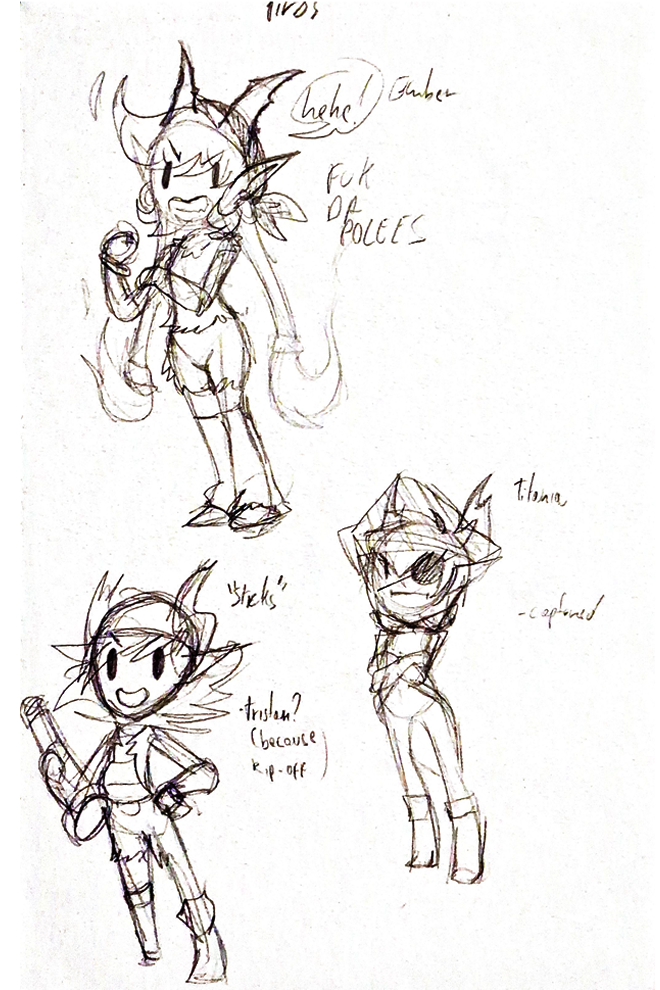 hehe!
Ember
FUK
DA
POLEES
titania
-captured
"Sticks"
-tristan?
(because
Rip-off)